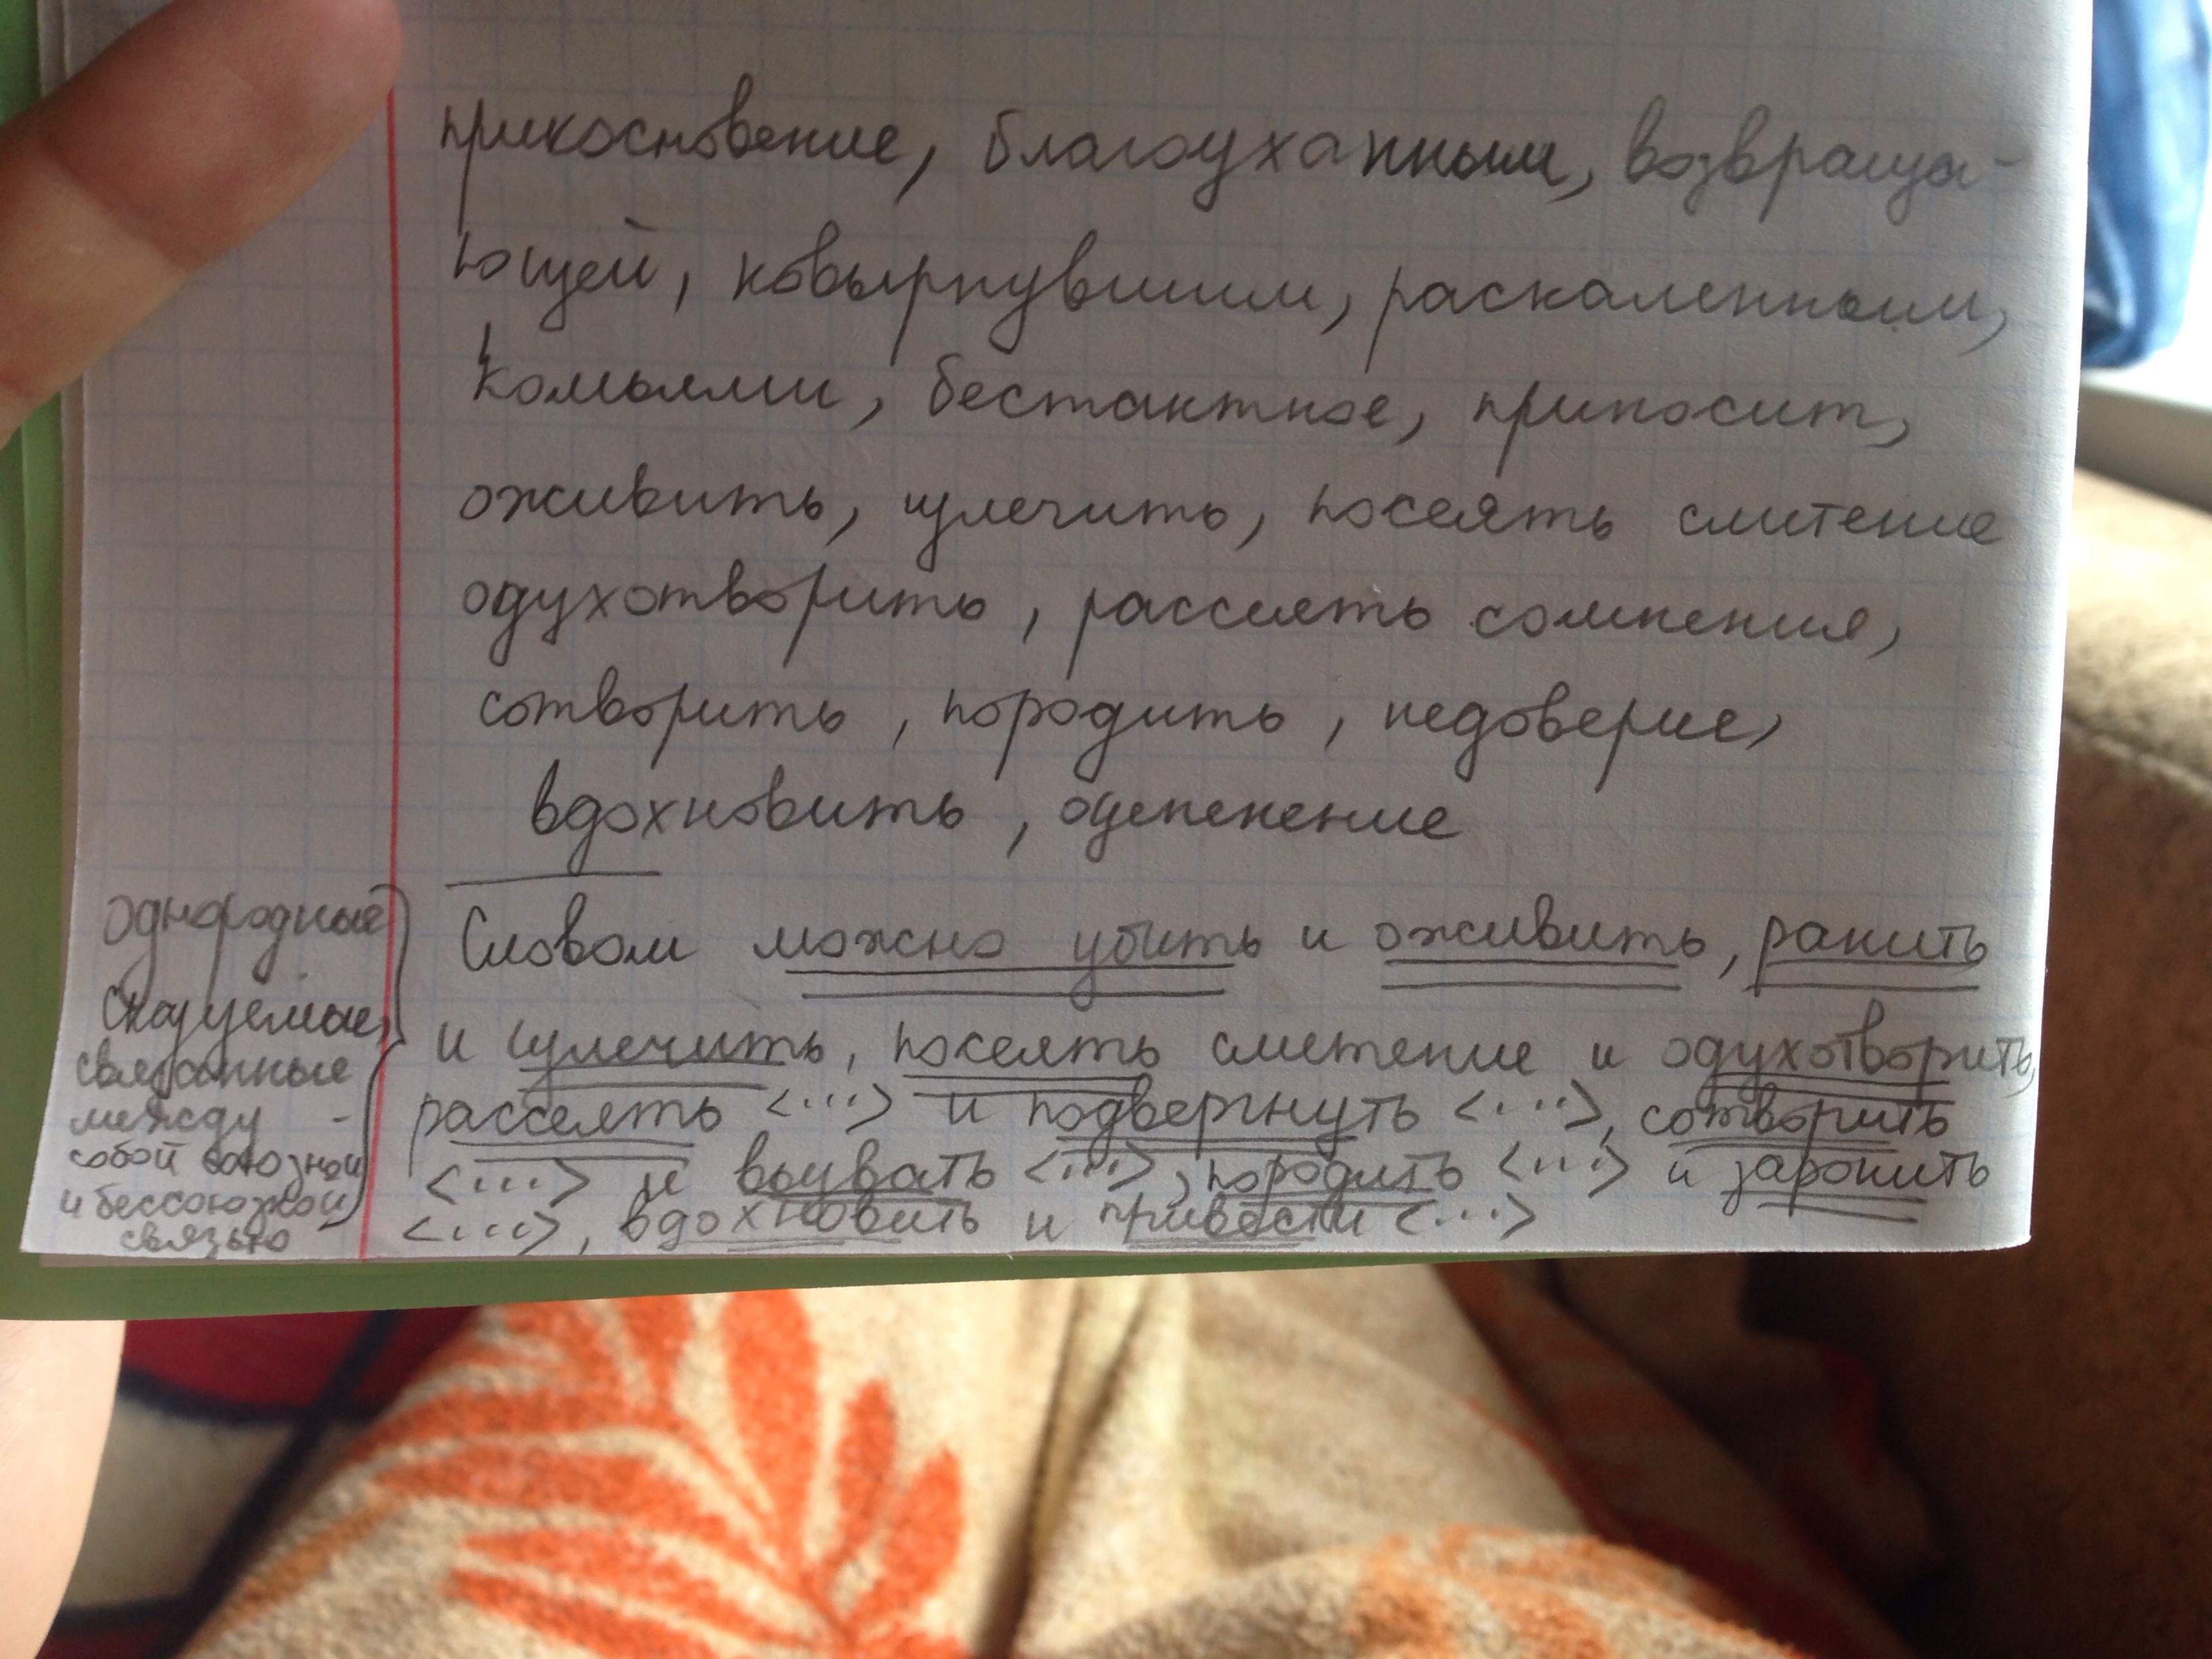 прикосновение, благоуханным, возвраща-
ющей, ковырнувшим, раскаленным,
комьями, бестактное, приносит,
оживить, излечить, посеять смятение
одухотворить, рассеять сомнения,
сотворить, породить, недоверие,
вдохновить, оцепенение
Словом можно убить и оживить, ранить
и излечить, посеять смятение и одухотворить,
рассеять <...> и подвергнуть <...>, сотворить
<...> и вызвать <...>, породить <...> и заронить
<...>, вдохновить и привести <...>
однородные
сказуемые,
связанные
между
собой союзной
и бессоюзной
связью